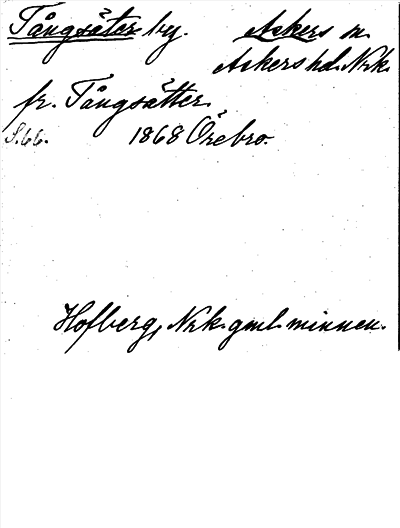 Tångsäter by. Askers sn.
Askers hd. Nrk.
fr. Tångsätter.
S. 66. 1868 Örebro.
Hofberg, Nrk. gml. minnen.